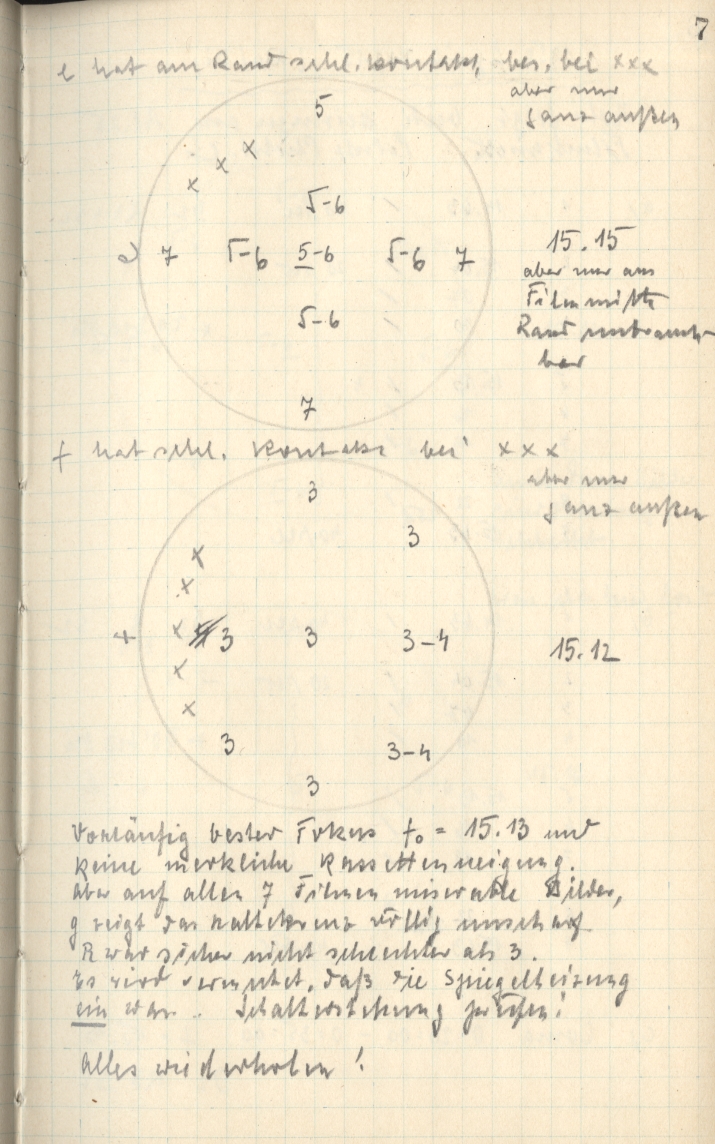 7
e hat am Rand schl. Kontakt, bes. bei xxx
aber nur
ganz außen
5
x
x
x
5-6
e 7 5-6 5-6 5-6 7
15.15
aber nur am
Filmmitte
5-6
Rand unbrauch-
bar
7
f hat schl. Kontakt bei xxx
aber nur
ganz außen
3
3
x
x
f x 3 3 3-4
15.12
x
x
3 3-4
3
Vorläufig bester Fokus f₀ = 15.13 und
keine merkliche Kassettenneigung.
Aber auf allen 7 Filmen miserable Bilder,
g zeigt das Haltekreuz völlig unscharf
R war sicher nicht schlechter als 3.
Es wird vermutet, daß die Spiegelheizung
ein war. Schalterstellung prüfen!
Alles wiederholen!